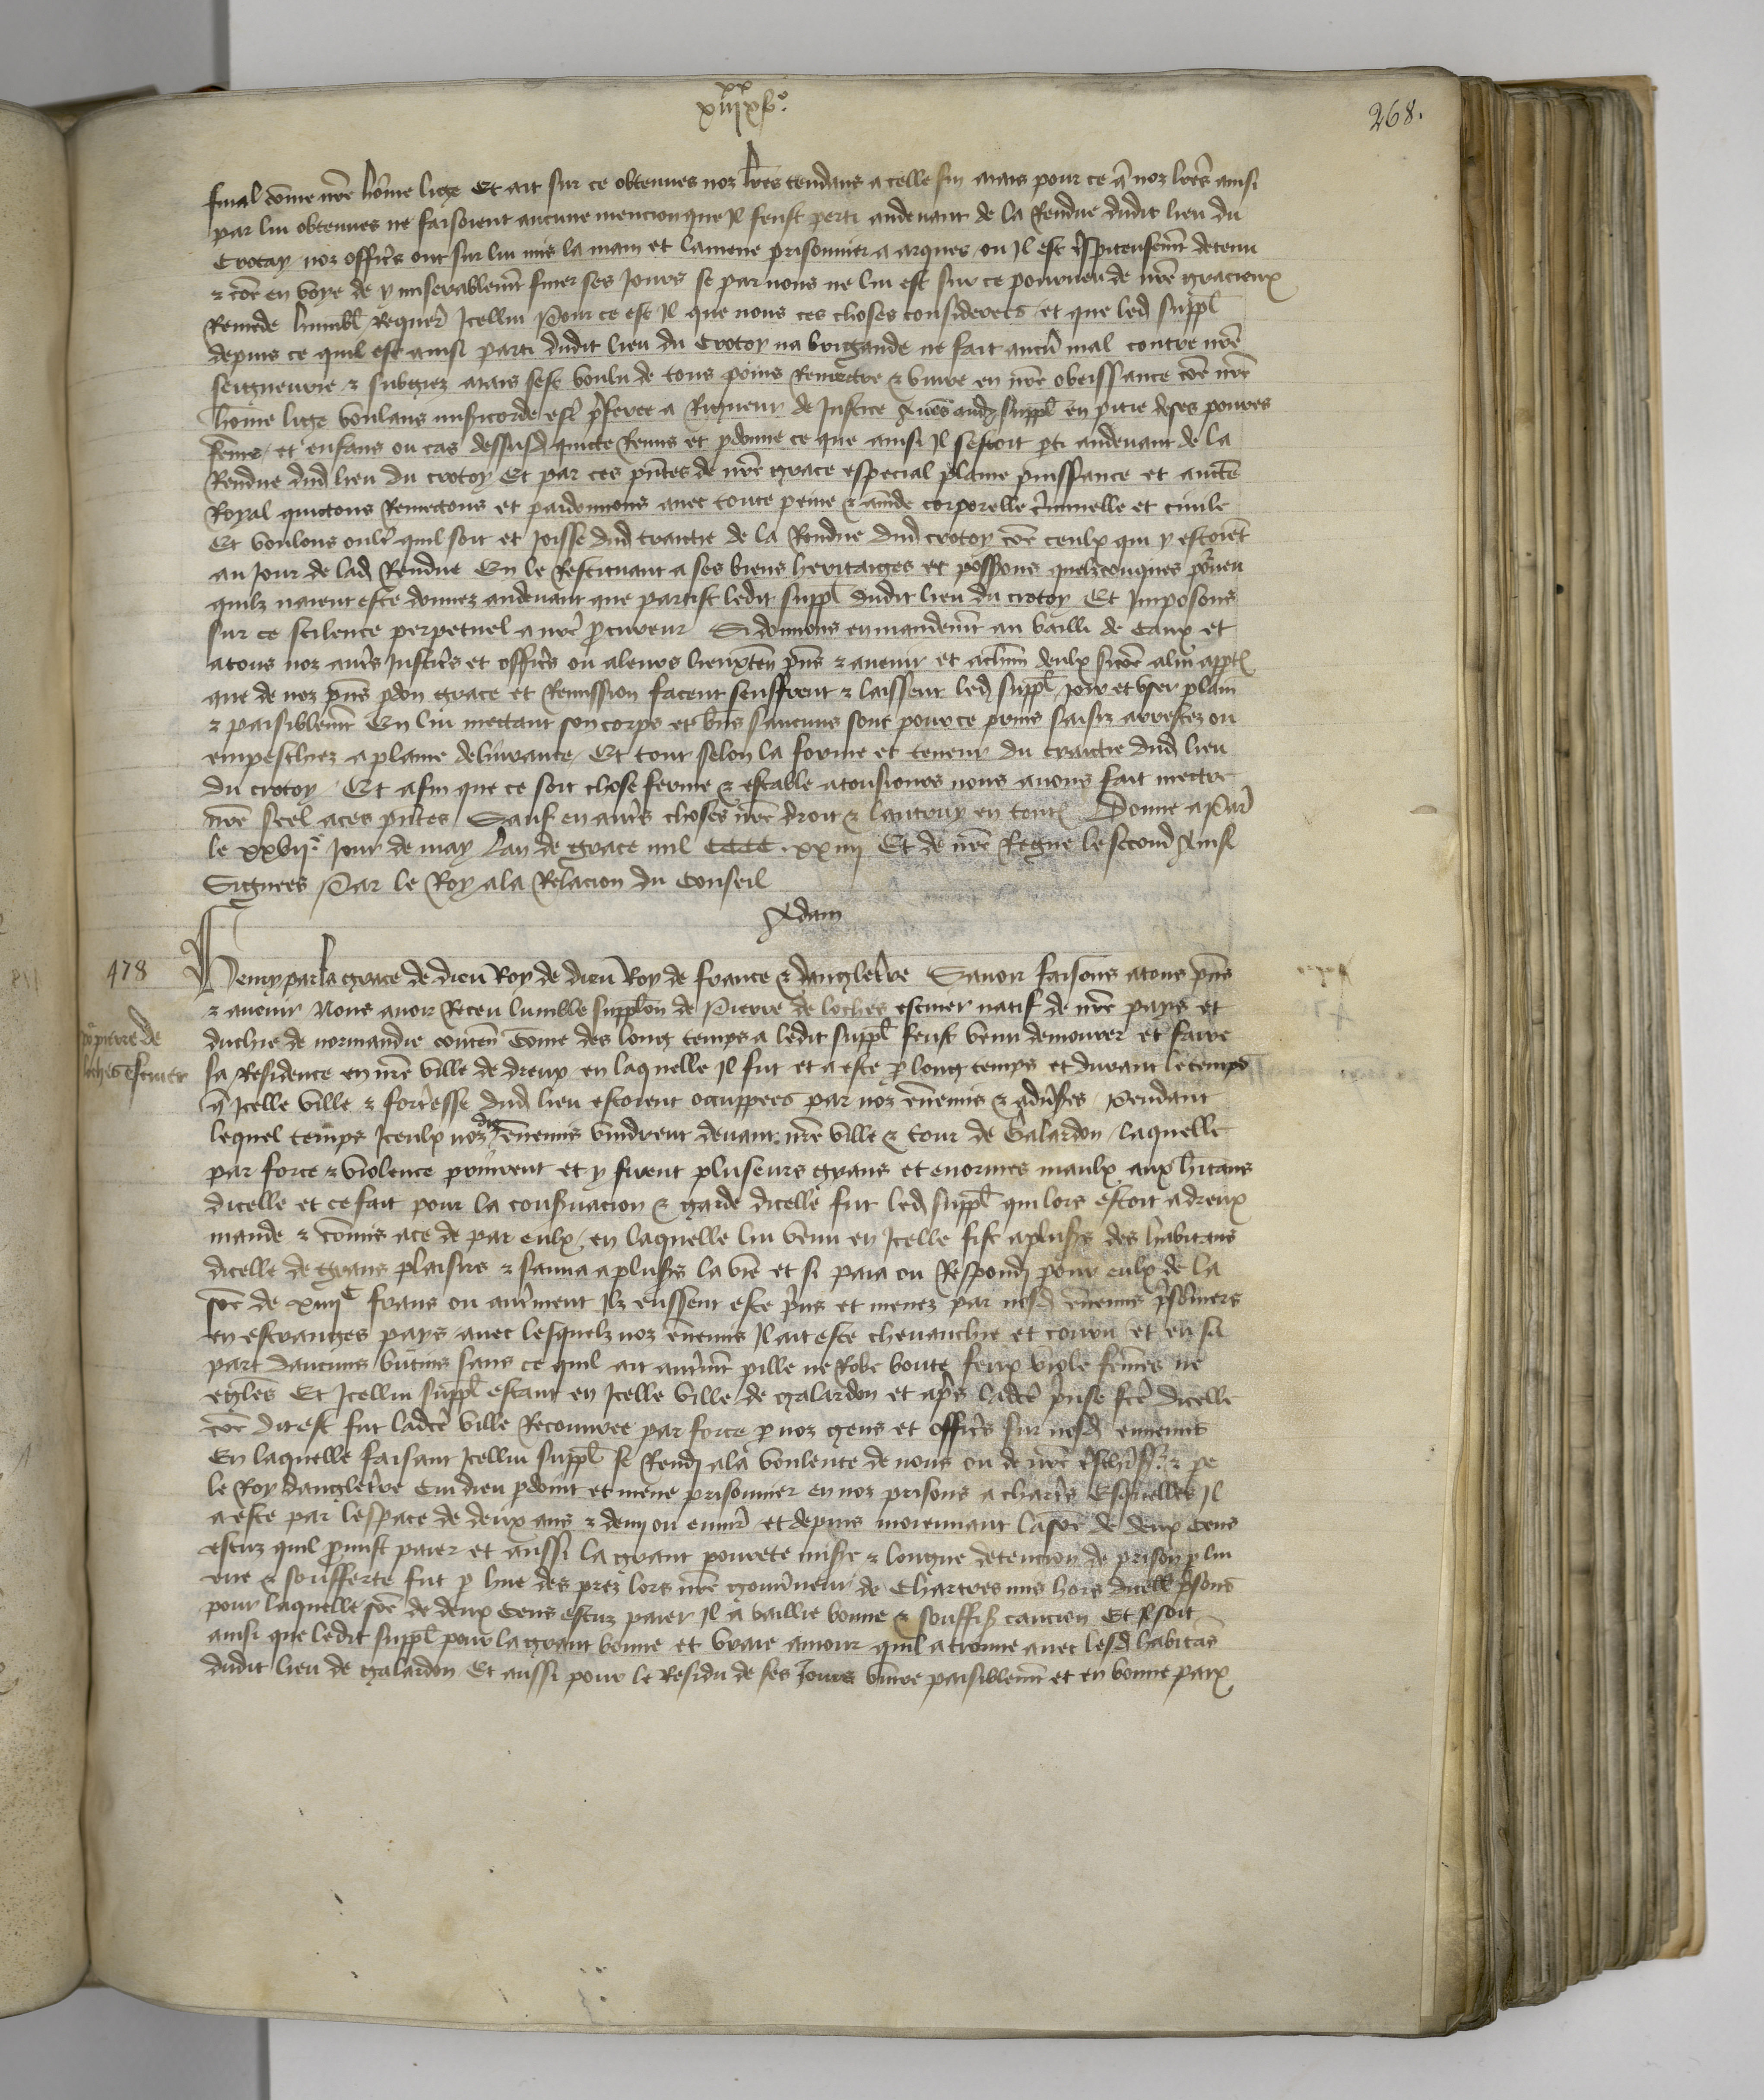 xx
xiiijxvo.
268.
final cōme nr̄e hōme lige Et ait sur ce obtenues noz lr̄es tendans a celle fin mais pour ce q̄ noz lr̄es ainsi
par lui obtenues ne faisoient aucune mencion que Il feust parti audeuant de la Rendue dudit lieu du
Crotay noz offic̄rs ont sur lui mis la main et lamene prisonnier a arques ou Il est detenu
& en voye de y miserablem̄t finer ses Jours se par nous ne lui est sur ce pourueu de nr̄e gracieux
Remede humbl̄ Requer̄ Icellui Pour ce est Il que nous ces choses considerees et que led suppl̄
depuis ce quil est ainsi parti dudit lieu du Crotoy na brigande ne fait aucū mal contre nr̄e
seigneurie & subgiez mais sest voulu de tous poins Remectre & viure en nr̄e obeissance cōe nr̄e
hōme lige voulans mis̄icorde est̄ p̄feree a Rigueur de Justice Auōs aud suppl̄ en pitie de ses poures
fēme et enfans ou cas dessusd quicte Remis et p̄donne ce que ainsi Il sestoit p̄ti audeuant de la
Rendue dud lieu du crotoy Et par ces pn̄tes de nr̄e grace especial plaine puissance et auct̄e
Royal quictons Remectons et pardonnons auec toute peine & am̄de corporelle c̄minelle et ciuile
Et voulons oult̄ quil soit et Joisse dud traictie de la Rendue dud crotoy cōe ceulx qui y estoiēt
au Jour de lad Rendue En le Restituant a ses biens heritaiges et poss̄ions quelzconques pōurueu
quilz naient este donnez audeuant que partist ledit suppl̄ dudit lieu du crotoy Et Imposons
sur ce scilence perpetuel a nr̄e p̄cureur Si donnons en mandem̄t au bailli de Caux et
atous noz aut̄s Justic̄rs et offic̄rs ou aleurs lieuxten̄ pn̄s & auenir et achūn deulx sicōe alui app̄t
que de noz pn̄s p̄don grace et Remission facent seuffrent & laissent led suppl̄ Joir et vser plain̄
& paisiblem̄t En lui mectant son corps et b̄ns saucuns sont pour ce prins saisiz arrestez ou
empeschiez a plaine deliurance Et tout selon la forme et teneur du traictie dud lieu
du crotoy Et afin que ce soit chose ferme & estable atousiours nous auons fait mectre
nr̄e scel aces pn̄tes Sauf en aut̄s choses nr̄e droit & lautruy en tout̄ Donne a Par̄
le xxviio Jour de may Lan de grace mil CCCC xxiiij Et de nr̄e Regne le second Ainsi
Signees Par le Roy ala Relacion du Conseil
Adam
478
po pierre de
loches escuier
Henry par la grace de dieu Roy de dieu Roy de france & dangleterre Sauoir faisons atous pn̄s
& auenir Nous auoir Receu lumble supplic̄on de Pierre de loches escuier natif de nr̄e pays et
duchie de normandie conten̄ Cōme des long temps a ledit suppl̄ feust venu demourer et faire
sa Residence en nr̄e ville de dreux en laquelle Il fut et a este p̄ long temps et durant le temps
q̄ Icelle ville & fort̄esse dud lieu estoient occuppees par noz ēnemis & adūs̄es Pendant
lequel temps Iceulx noz diz ēnemis vindrent deuant nr̄e ville & tour de Galardon laquelle
par force & violence prindrent et y firent pluseurs grans et enormes maulx aux h̄itans
dicelle et ce fait pour la cons̄uacion & garde dicelle fut led suppl̄ qui lors estoit a dreux
mande & cōmis ace de par eulx en laquelle lui venu en Icelle fist a plus̄s des habitans
dicelle de grans plaisirs & sauua a plus̄s la vie et si paia ou Respondi pour eulx de la
sōe de xiiijC frans ou aut̄ment Ilz eussent este p̄ns et menez par nosd ēnemis p̄sonniers
en estranges pays auec lesquelz noz ēnemis Il ait este cheuauchie et couru et eu sa
part daucuns butins sans ce quil ait aut̄m̄t pille ne Robe boute feux viole fēmes ne
egl̄es Et Icellui suppl̄ estant en Icelle ville de galardon et ap̄s lad̄te p̄nse fc̄e dicelle
cōe dit est fut lad̄te ville Recouuree par force p̄ noz gens et offic̄rs sur nosd ennemis
En laquelle faisant Icellui suppl̄ se Rendi ala voulente de nous ou de nr̄e & pe
le Roy dangleterre Cui dieu p̄doint et mene prisonnier en noz prisons a chart̄s Esquelles Il
a este par lespace de deux ans & demi ou enuir̄ et depuis moiennant la sōe de deux Cens
escuz quil p̄mist paier et aussi la grant pourete mis̄e & longue detencion de prison p̄ lui
eue & soufferte fut p̄ hue des prez lors nr̄e gouūneur de Chartres mis hors dicell̄ p̄sons
pour laquelle sōe de deux Cens escuz paier Il a baillie bonne & souffis̄ caucion Et Il soit
ainsi que ledit suppl̄ pour la grant bonne et vraie amour quil a trouue auec lesd habitās
dudit lieu de galardon Et aussi pour le Residu de ses Jours viure paisiblem̄t et en bonne paix